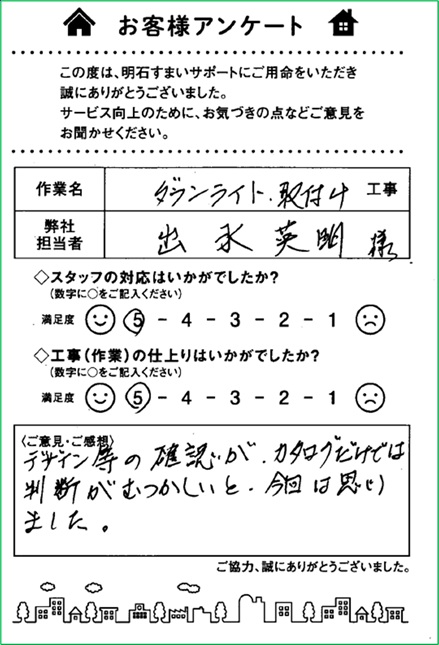 お客様アンケート
この度は、明石すまいサポートにご用命をいただき
誠にありがとうございました。
サービス向上のために、お気づきの点などご意見を
お聞かせください。
作業名 ダウンライト.取付け 工事
弊社
担当者 出永英明 様
◇スタッフの対応はいかがでしたか?
(数字に○をご記入ください)
満足度 5 - 4 - 3 - 2 - 1
◇工事(作業)の仕上りはいかがでしたか?
(数字に○をご記入ください)
満足度 5 - 4 - 3 - 2 - 1
〈ご意見・ご感想〉
デザイン等の確認が、カタログだけでは
判断がむつかしいと、今回は思い
ました。
ご協力、誠にありがとうございました。